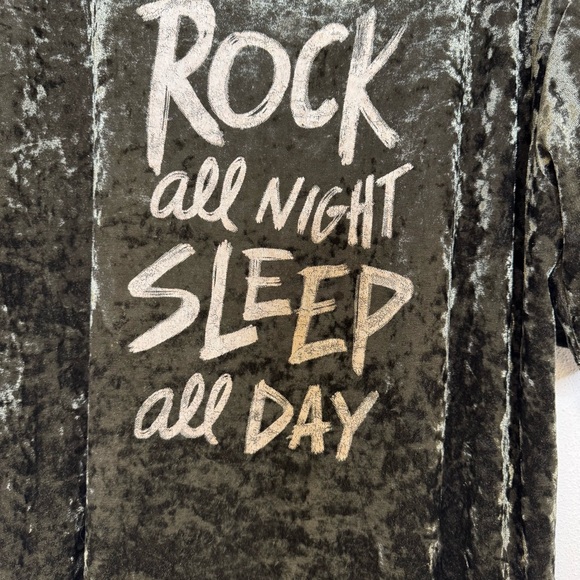 ROCK
all NIGHT
SLEEP
all DAY